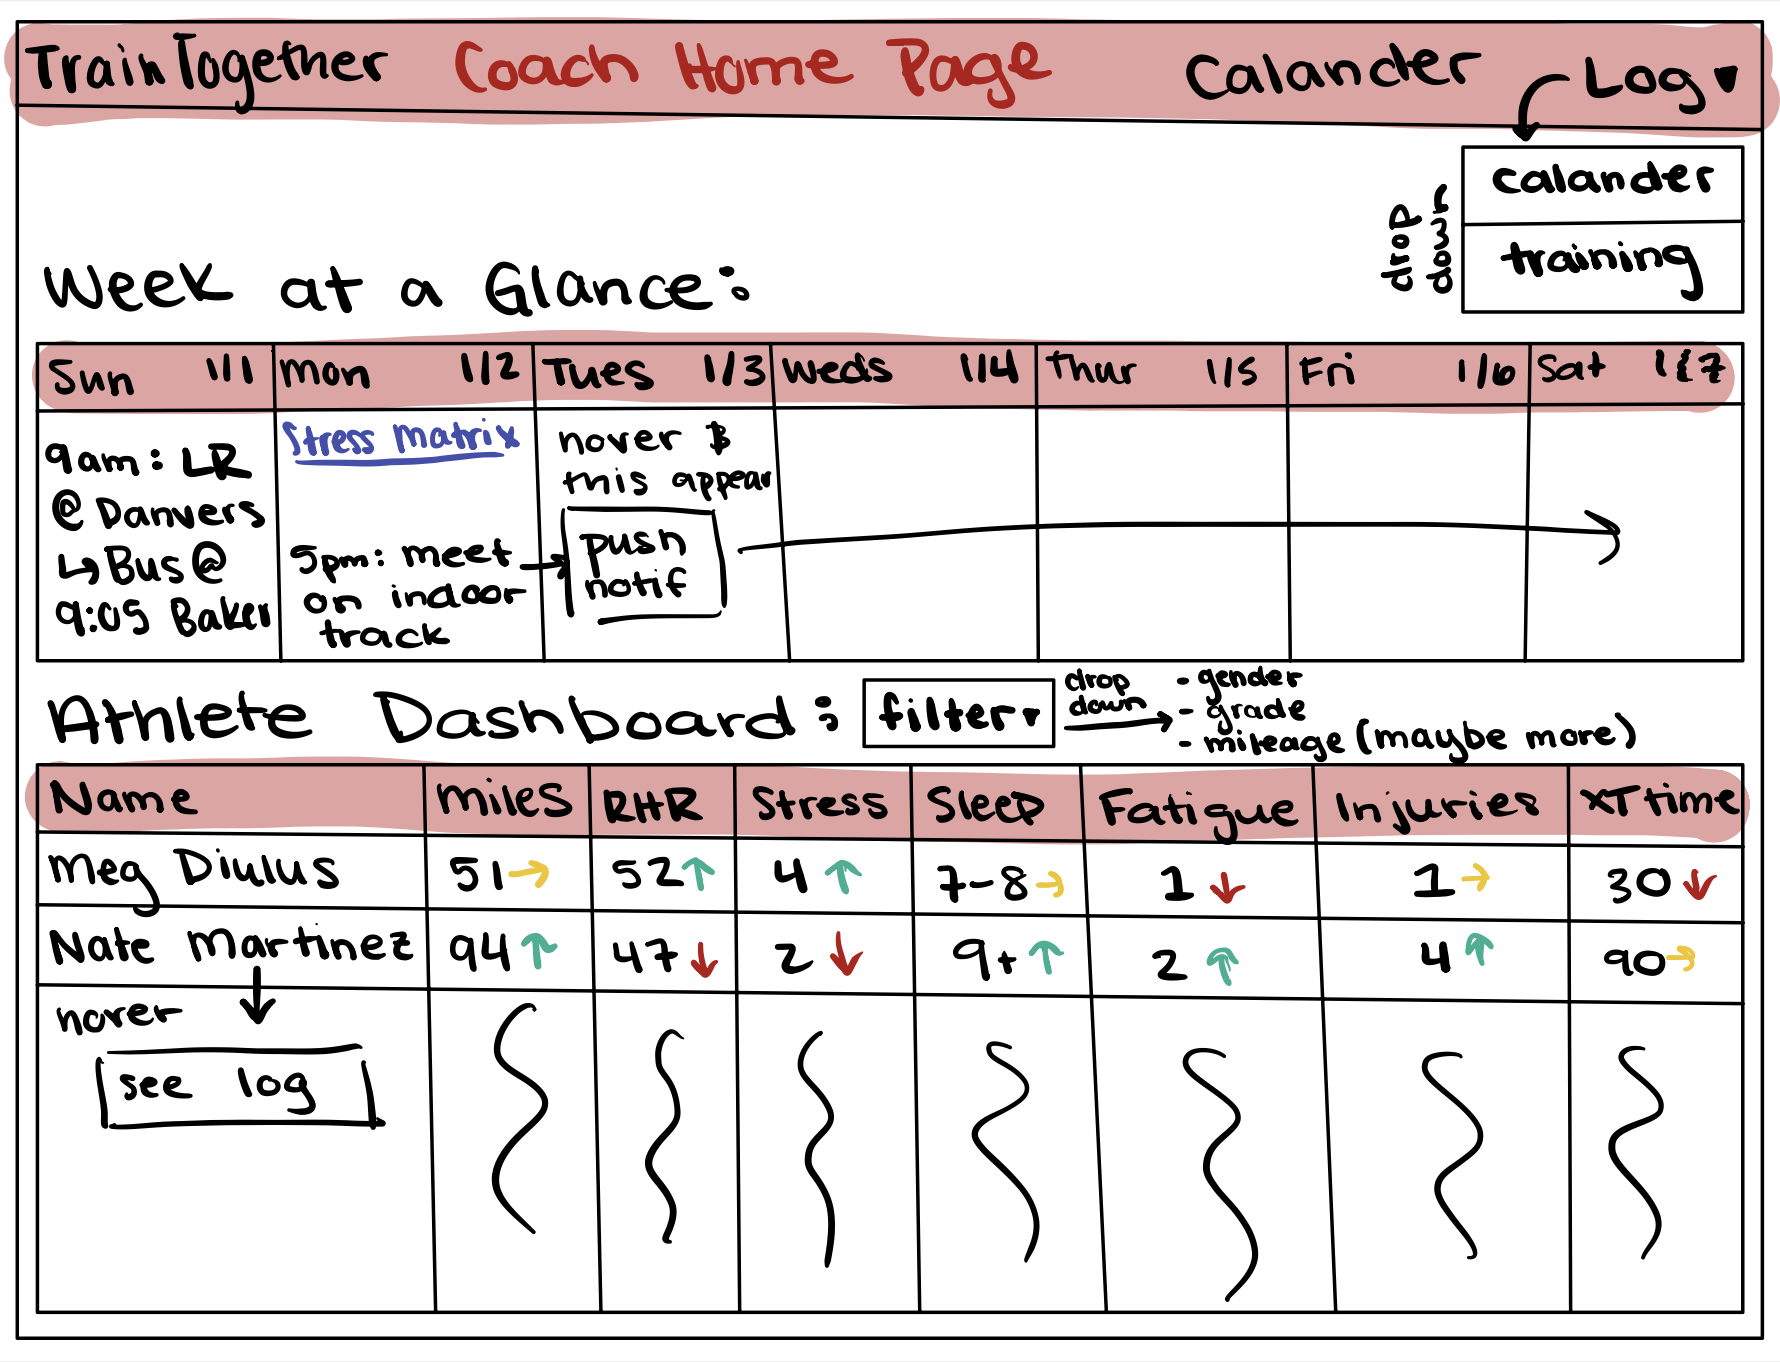 TrainTogether Coach Home Page Calander Log ▼
calander
drop down
training
Week at a Glance:
Sun 1/1 Mon 1/2 Tues 1/3 Weds 1/4 Thur 1/5 Fri 1/6 Sat 1/7
9am: LR
@ Danvers
↳ Bus @
9:05 Baker
Stress Matrix
5pm: meet →
on indoor
track
hover &
this appear
push
notif
Athlete Dashboard: filter ▾
drop
down
- gender
- grade
- mileage (maybe more)
Name Miles RHR Stress Sleep Fatigue Injuries XT time
Meg Diulus 51 → 52 ↑ 4 ↑ 7-8 → 1 ↓ 1 → 30 ↓
Nate Martinez 94 ↑ 47 ↓ 2 ↓ 9+ ↑ 2 ↑ 4 ↑ 90 →
hover ↓
see log